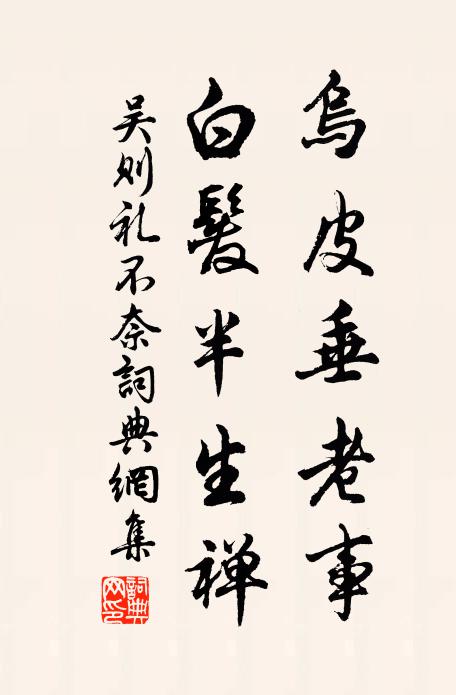 烏皮垂老事
白髮半生禅
吴则礼不奈詞典網集
詞典网印